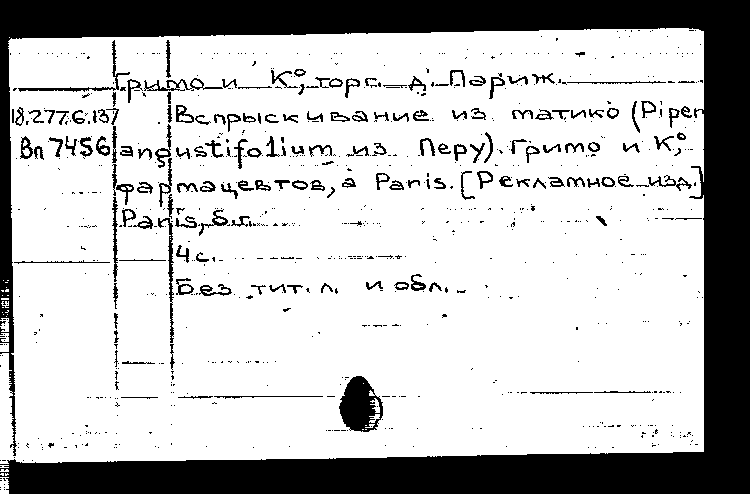 Гримо и К°, торг. д. Париж.
18.277.6.137 Вспрыскивание из матико (Piper
Вп 7456 angustifolium из Перу). Гримо и К°,
фармацевтов, а Paris. [Рекламное изд.]
Paris, б.г.
4 с.
Без тит. л. и обл.